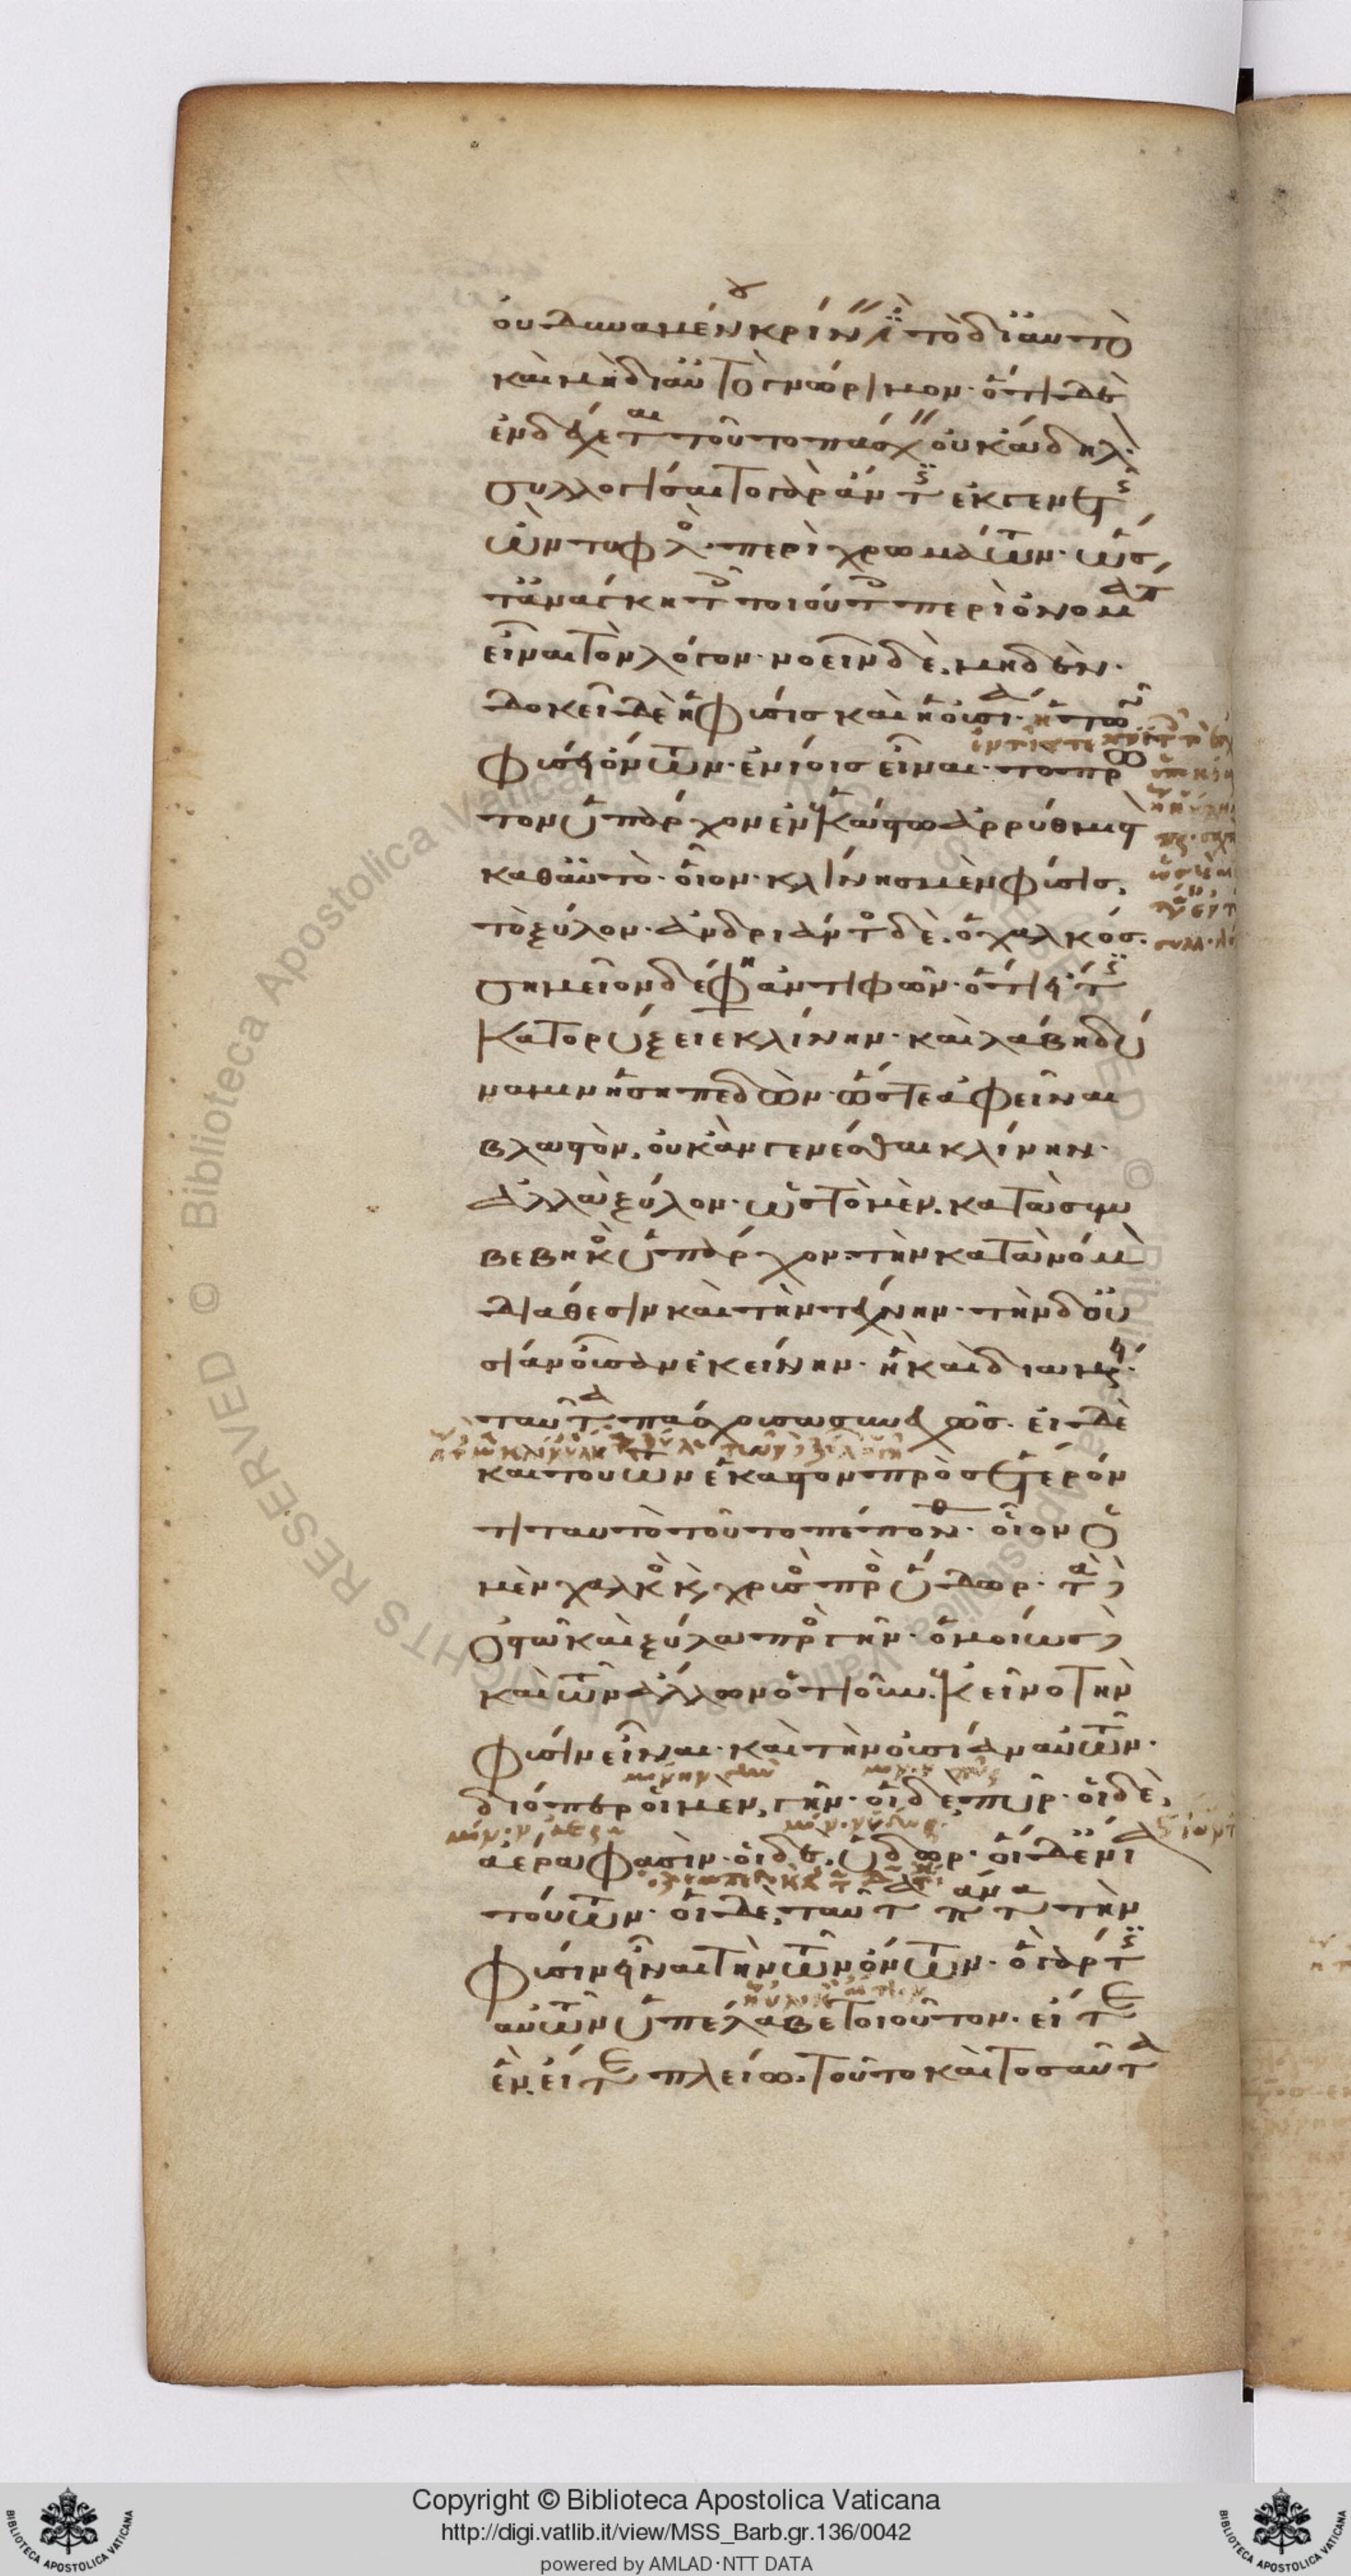 οὐ δυναμένου κρίνειν ἐστὶ τὸ δι' αὑτὸ
καὶ μὴ δι' αὑτὸ γνώριμον· ὅτι δὲ
ἐνδέχεται τοῦτο πάσχειν οὐκ ἄδηλον·
συλλογίσαιτο γὰρ ἄν τις ἐκ γενετῆς
ὢν τυφλὸς περὶ χρωμάτων· ὥστε
ἀνάγκη τοῖς τοιούτοις περὶ ὀνομάτων
εἶναι τὸν λόγον· νοεῖν δὲ, μηδέν.
δοκεῖ δὲ ἡ φύσις καὶ ἡ οὐσία ἡ τῶν
φύσει ὄντων· ἐνίοις εἶναι· τὸ πρῶ
τον ὑπάρχον ἐν ἑκάστῳ ἀρρύθμιστον
καθ' αὑτὸ· οἷον· κλίνης μὲν φύσις,
τὸ ξύλον· ἀνδριάντος δὲ, ὁ χαλκός.
σημεῖον δέ φησιν ἀντιφῶν· ὅτι εἴ τις
κατορύξειε κλίνην· καὶ λάβῃ δύ
ναμιν ἡ σηπεδὼν· ὥστε ἀφεῖναι
βλαστὸν, οὐκ ἂν γενέσθαι κλίνην·
ἀλλὰ ξύλον· ὡς τὸ μὲν, κατὰ συμ
βεβηκὸς ὑπάρχον· τὴν κατὰ νόμον
διάθεσιν καὶ τὴν τέχνην· τὴν δ' οὐ
σίαν οὖσαν ἐκείνην· ἣ καὶ διαμένει
ταῦτα πάσχουσα συνεχῶς· εἰ δὲ
καὶ τούτων ἕκαστον πρὸς ἕτερόν
τι ταυτὸ τοῦτο πέπονθεν· οἷον ὁ
μὲν χαλκὸς καὶ χρυσὸς πρὸς ὕδωρ· τὰ δὲ
ὀστᾶ καὶ ξύλα πρὸς γῆν· ὁμοίως δὲ
καὶ τῶν ἄλλων ὁτιοῦν· ἐκεῖνο τὴν
φύσιν εἶναι· καὶ τὴν οὐσίαν αὐτῶν·
διόπερ οἱ μὲν, γῆν· οἱ δὲ πῦρ· οἱ δὲ,
ἀέρα φασὶν· οἱ δὲ, ὕδωρ· οἱ δὲ ἔνια
τούτων· οἱ δὲ, ταῦτα πάντα τὴν
φύσιν εἶναι τὴν τῶν ὄντων· ὃ γάρ τις
αὐτῶν ὑπέλαβε τοιοῦτον· εἴτε
ἕν, εἴτε πλείω· τοῦτο καὶ τοσαῦτα
Copyright © Biblioteca Apostolica Vaticana
http://digi.vatlib.it/view/MSS_Barb.gr.136/0042
powered by AMLAD·NTT DATA